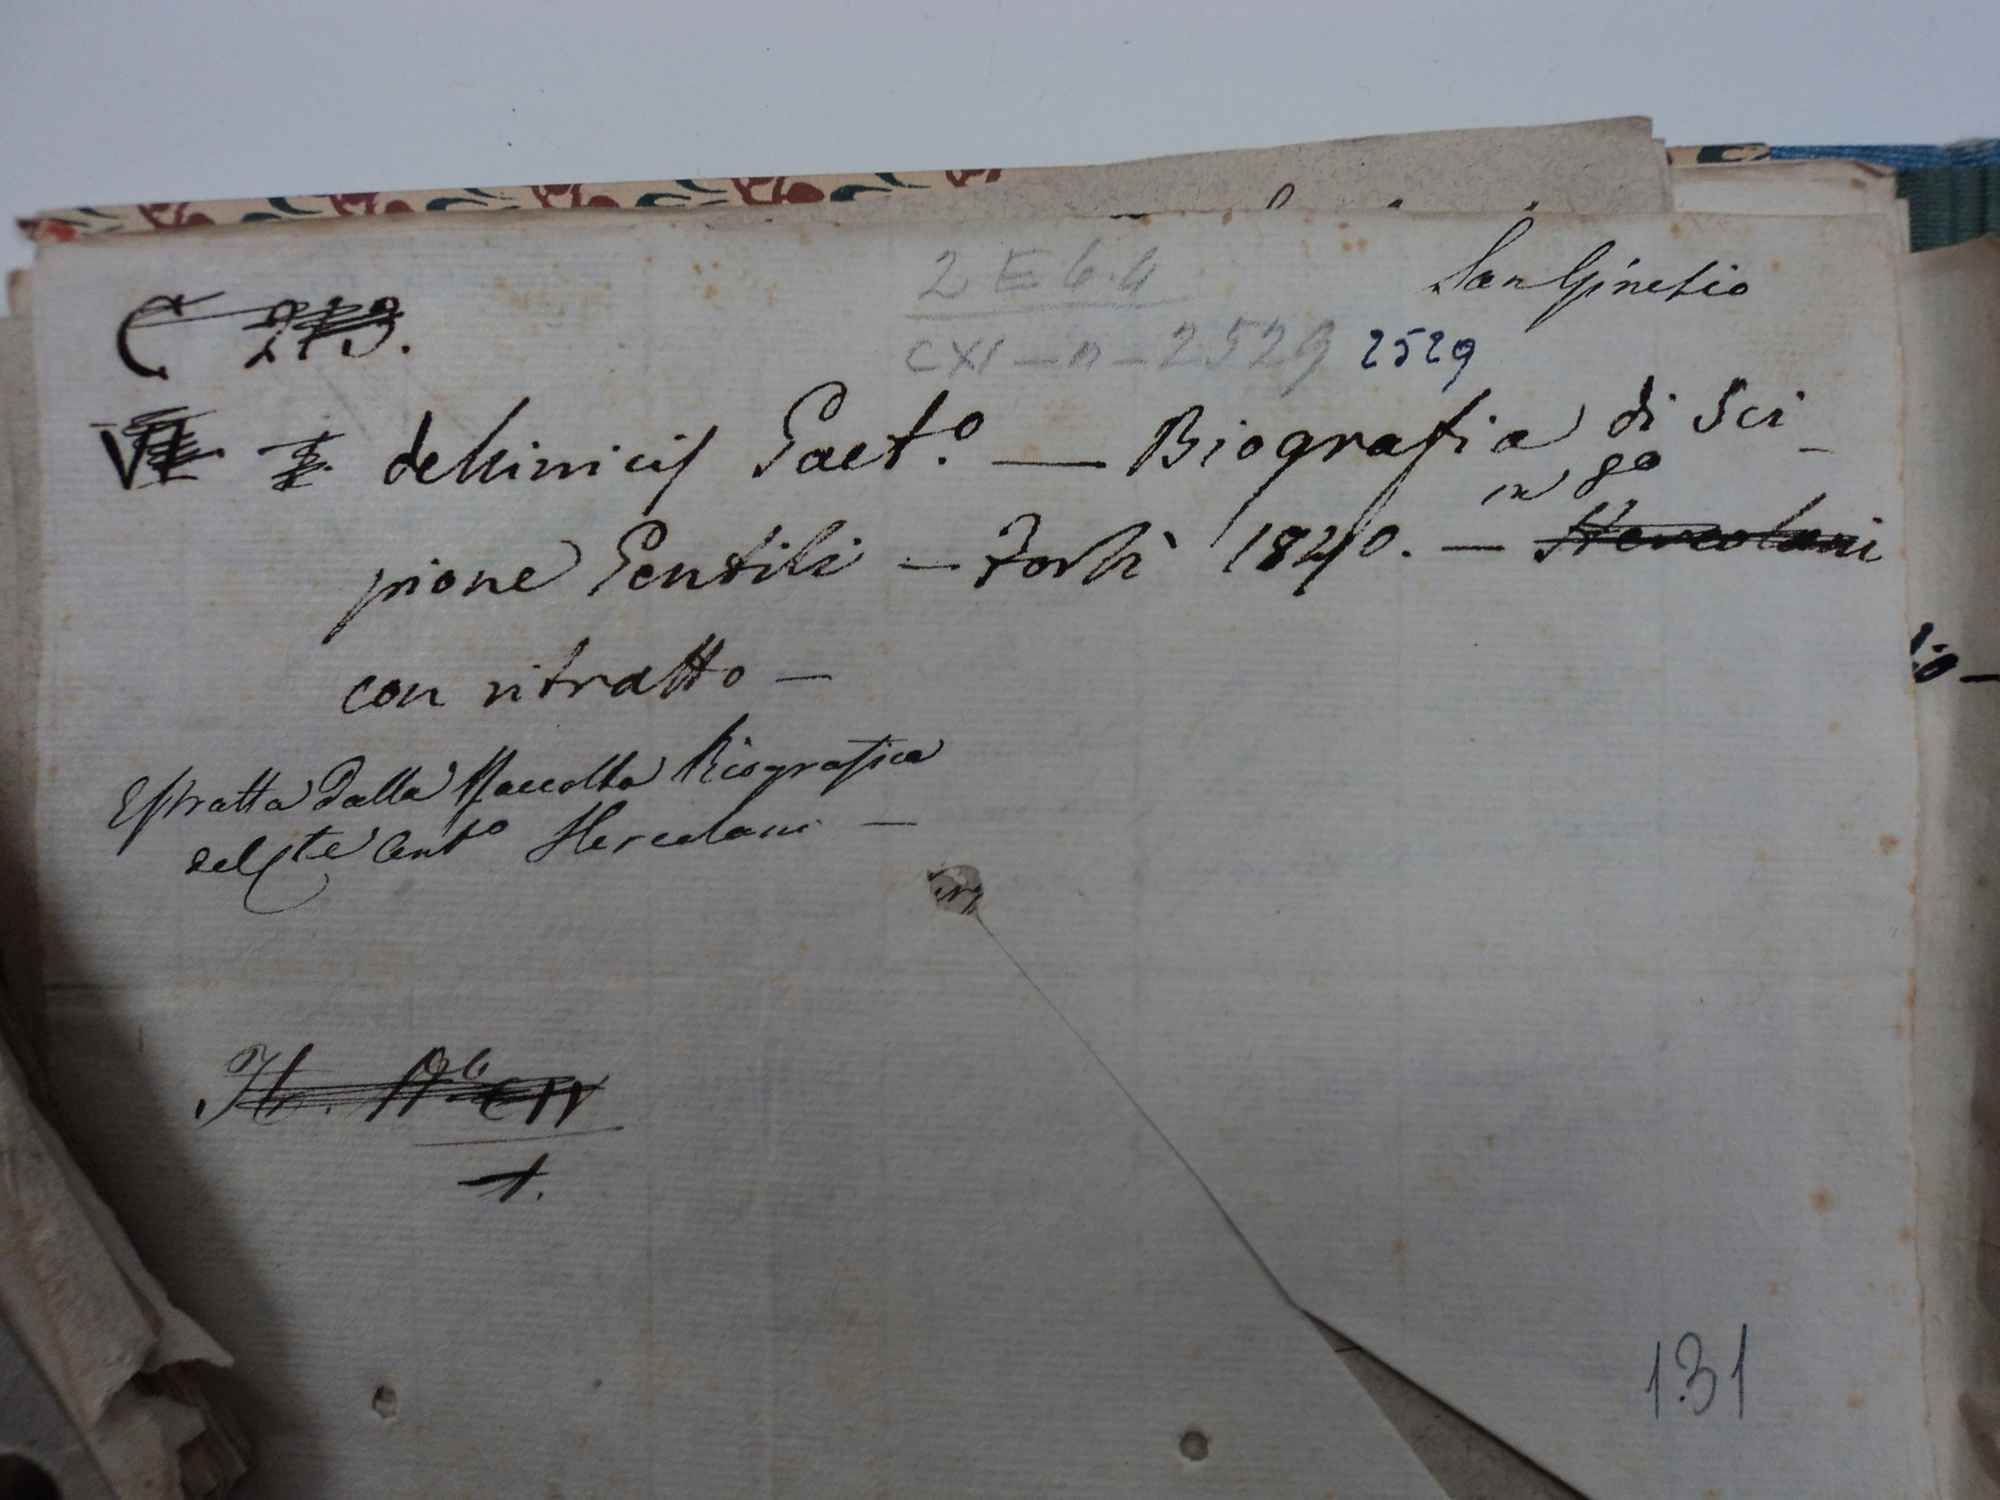 2 E 6.4
San Ginesio
C 273.
CXI - n - 2529 2529
VI I. deMinicis Gaet.º — Biografia di Sci-
in 8º
pione Gentili - Forlì 1840. — Hercolani
con ritratto —
Estratta dalla Raccolta Biografica
del Cte Antº Hercolani —
1.
131